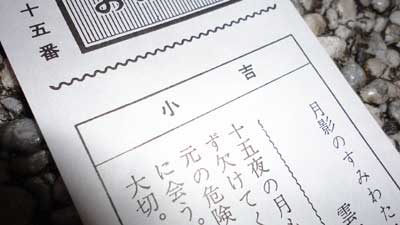 十五番
お
小吉
月影のすみわた
雲
十五夜の月
ず欠けてく
元の危険
に会う。
大切。